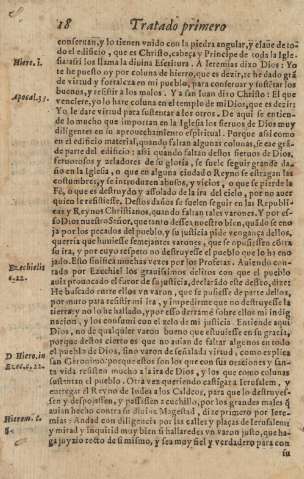 18 Tratado primero
conseruan, y lo tienen vnido con la piedra angular, y claue de to-
do el edificio, que es Christo, cabeça y Principe de toda la Igle-
Hiere. 1.
sia: assi los llama la diuina Escritura. A Ieremias dizo Dios: Yo
te he puesto oy por coluna de hierro, que es dezir, te he dado grã
de virtud y fortaleza en mi pueblo, para conseruar y sustentar los
buenos, y resistir a los malos. Ya san Iuan dixo Christo: El que
Apocal. 3.
venciere, yo lo hare coluna en el templo de mi Dios, que es dezir:
Yo le dare virtud para sustentar a los otros. De aqui se entien-
de lo mucho que importan en la Iglesia los sieruos de Dios muy
diligentes en su aprouechamiento espiritual. Porque assi como
en el edificio material, quando faltan algunas colunas, se cae grã
de parte del edificio: assi quando faltan destos sieruos de Dios,
feruorosos y zeladores de su gloria, se suele seguir grande da-
ño en la Iglesia, o que en alguna ciudad o Reyno se estragan las
costumbres, y se introduzen abusos, y vicios, o que se pierde la
Fè, o que es destruydo y assolado de la ira del cielo, por no auer
quien le resistiesse. Destos daños se suelen seguir en las Republi
cas y Reynos Christianos, quando faltan tales varones. Y por es-
so Dios nuestro Señor, que tanto dessea nuestro bien, quãdo se eno
ja por los pecados del pueblo, y su justicia pide vengança dellos,
querria que huuiesse semejantes varones, que se opusiessen cõtra
su ira, y por cuyo respeto no destruyesse el pueblo que lo ha eno
jado. Esto significa muchas vezes por los Profetas. Auiendo con-
Ezechielis
tado por Ezechiel los grauissimos delitos con que el pueblo
c. 22.
auia prouocado el furor de su justicia, declarãdo este desseo, dize:
He buscado entre ellos vn varon, que se pusiesse de parte dellos,
por muro para resistir mi ira, y impedirme que no destruyesse la
tierra: y no lo he hallado, y por esso derramè sobre ellos mi indig
nacion, y los consumi con el zelo de mi justicia. Entiende aqui
Dios, no de qualquier varon bueno que estuuiesse en su gracia,
porque destos cierto es que no auian de faltar algunos en todo
el pueblo de Dios, sino varon de señalada virtud, como explica
D. Hiero, in
san Geronimo: porque estos son los que con sus oraciones y san-
Ezec. c. 22.
ta vida resisten mucho a la ira de Dios, y los que como colunas
sustentan el pueblo. Otra vez queriendo castigar a Ierusalem, y
entregar el Reyno de Iudea a los Caldeos, para que lo destruyes-
sen y despojassen, y passassen a cuchillo, por los grandes males q̃
auian hecho contra su diuina Magestad, dize primero por Iere-
Hierem. 5.
mias: Andad con diligencia por las calles y plaças de Ierusalem,
y mirad y inquirid muy bien si hallaredes vn varon justo, que ha-
ga juyzio recto de si mismo, y sea muy fiel y verdadero para con
su